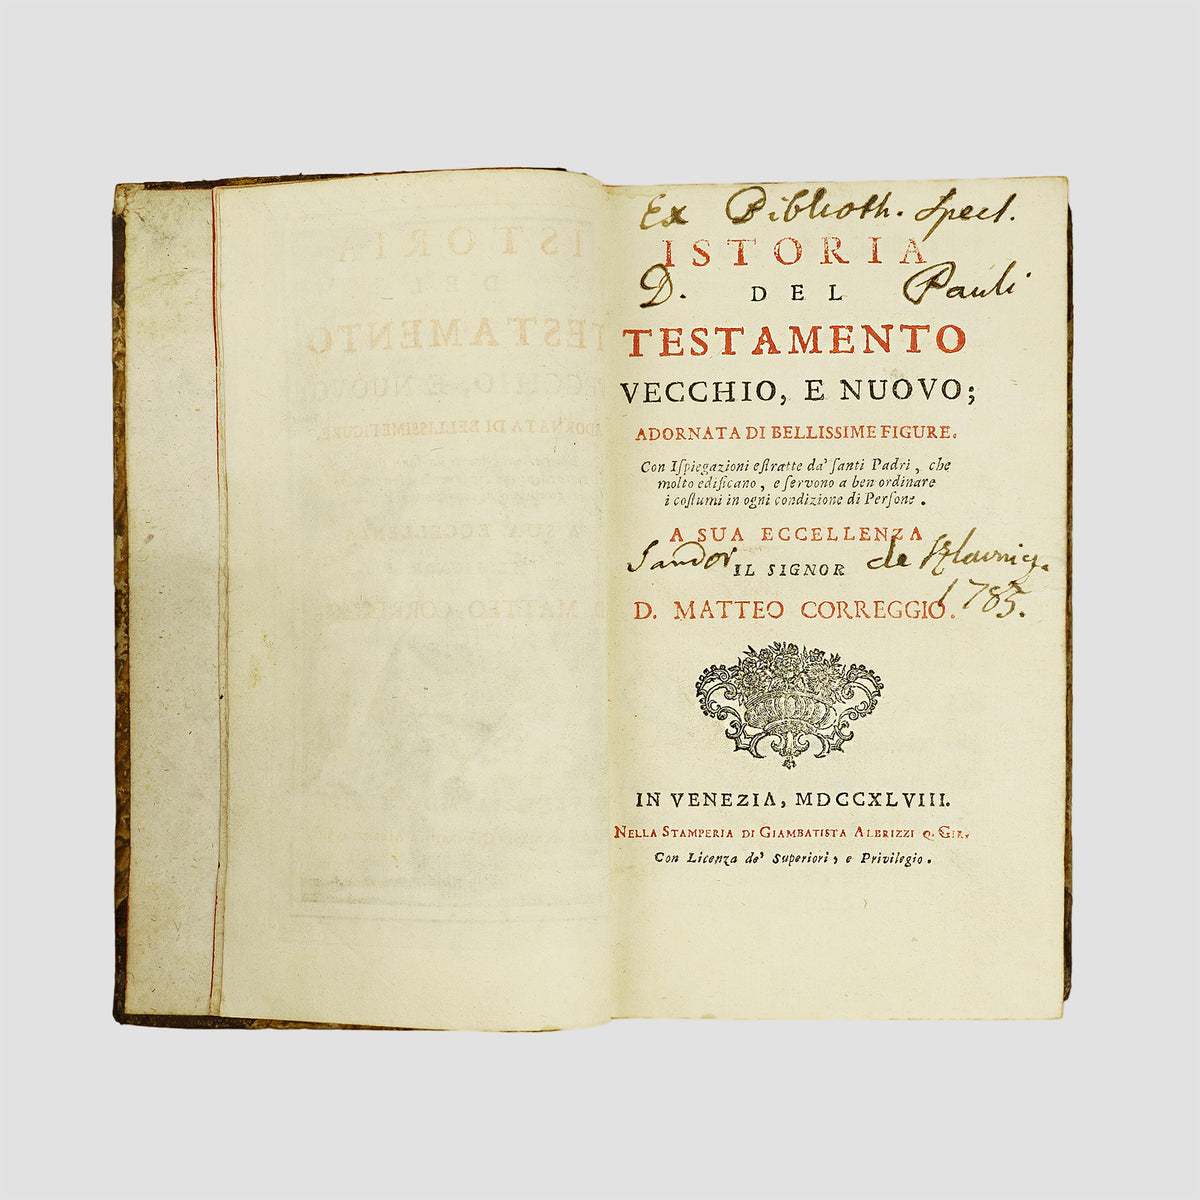 Ex Biblioth. Spect.
ISTORIA
D. DEL Pauli
TESTAMENTO
VECCHIO, E NUOVO;
ADORNATA DI BELLISSIME FIGURE.
Con Iſpiegazioni eſtratte da' ſanti Padri, che
molto edificano, e ſervono a ben ordinare
i coſtumi in ogni condizione di Perſone.
A SUA ECCELLENZA
Sandor de
IL SIGNOR
D. MATTEO CORREGGIO. 1785.
IN VENEZIA, MDCCXLVIII.
NELLA STAMPERIA DI GIAMBATISTA ALBRIZZI Q. GIR.
Con Licenza de' Superiori, e Privilegio.